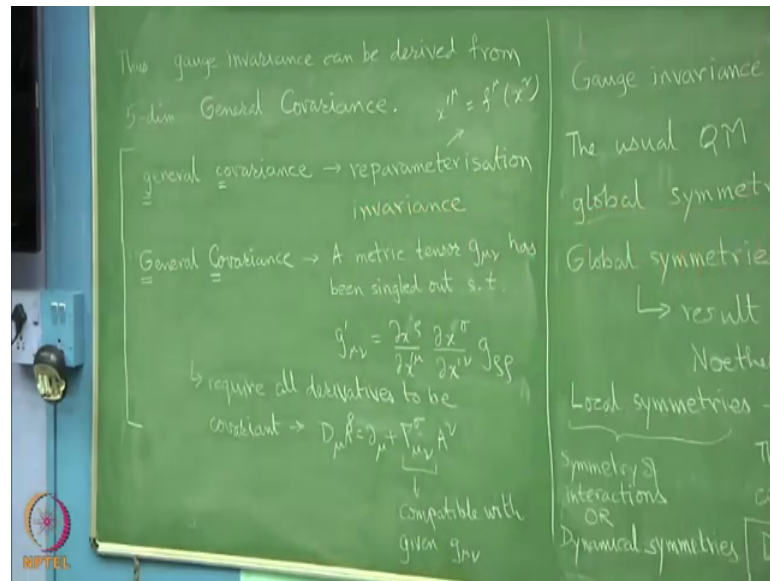 Thus gauge invariance can be derived from
5-dim General Covariance. x'^μ = f^μ(x^ν)
general covariance → reparameterisation
invariance
General Covariance → A metric tensor g_μν has
been singled out s.t.
g'_μν = ∂x^ρ/∂x'^μ ∂x^σ/∂x'^ν g_ρρ
↳ require all derivatives to be
covariant → D_μ = ∂_μ + Γ^σ_μν A^ν
compatible with
given g_μν
Gauge invariance
The usual QM
global symmetr
Global symmetrie
↳ result
Noethe
Local symmetries -
Symmetry of
interactions
OR
Dynamical symmetries
NPTEL